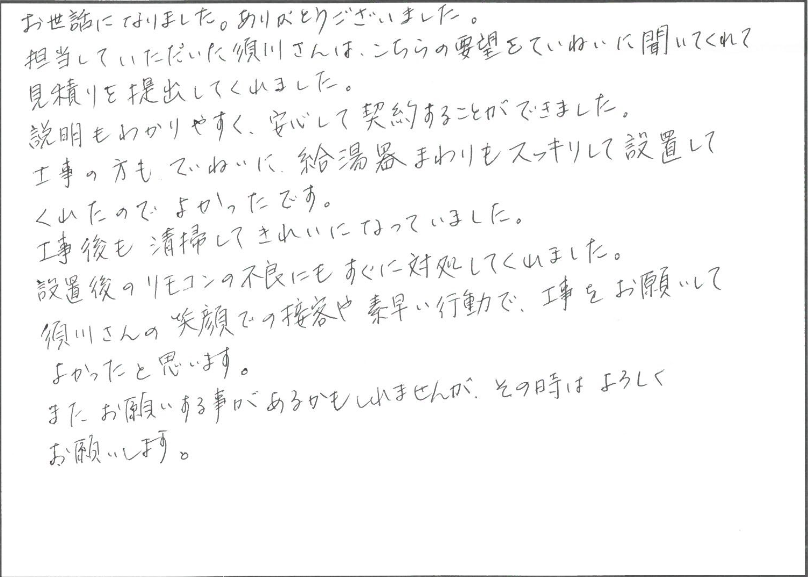 お世話になりました。ありがとうございました。
担当していただいた須川さんは、こちらの要望をていねいに聞いてくれて
見積りを提出してくれました。
説明もわかりやすく、安心して契約することができました。
工事の方もていねいに、給湯器まわりもスッキリして設置して
くれたのでよかったです。
工事後も清掃してきれいになっていました。
設置後のリモコンの不良にもすぐに対処してくれました。
須川さんの笑顔での接客や素早い行動で、工事をお願いして
よかったと思います。
またお願いする事があるかもしれませんが、その時はよろしく
お願いします。